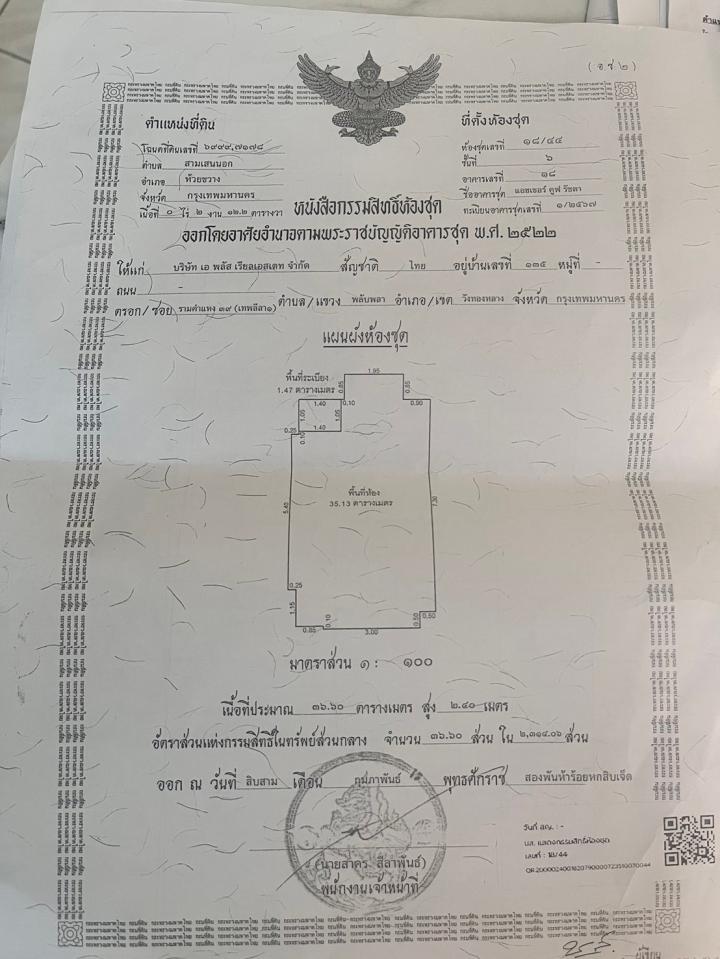 (อ.ช.๒)
ตำแหน่งที่ดิน
โฉนดที่ดินเลขที่ ๖๙๙๙,๗๑๗๘
ตำบล สามเสนนอก
อำเภอ ห้วยขวาง
จังหวัด กรุงเทพมหานคร
เนื้อที่ ๐ ไร่ ๒ งาน ๑๒.๒ ตารางวา
ที่ตั้งห้องชุด
ห้องชุดเลขที่ ๑๘/๔๔
ชั้นที่ ๖
อาคารเลขที่ ๑๘
ชื่ออาคารชุด แอชเชอร์ คูฟ รัชดา
ทะเบียนอาคารชุดเลขที่ ๑/๒๕๖๗
หนังสือกรรมสิทธิ์ห้องชุด
ออกโดยอาศัยอำนาจตามพระราชบัญญัติอาคารชุด พ.ศ. ๒๕๒๒
ให้แก่ บริษัท เอ พลัส เรียลเอสเตท จำกัด สัญชาติ ไทย อยู่บ้านเลขที่ ๑๓๕ หมู่ที่ -
ถนน -
ตรอก/ซอย รามคำแหง ๓๙ (เทพลีลา๑) ตำบล/แขวง พลับพลา อำเภอ/เขต วังทองหลาง จังหวัด กรุงเทพมหานคร
แผนผังห้องชุด
1.95
พื้นที่ระเบียง
1.47 ตารางเมตร
0.85
0.85
1.40
0.10
0.90
1.05
1.05
1.40
0.25
0.10
พื้นที่ห้อง
35.13 ตารางเมตร
5.40
7.30
0.25
1.15
0.10
0.50
0.50
0.85
3.00
มาตราส่วน ๑ : ๑๐๐
เนื้อที่ประมาณ ๓๖.๖๐ ตารางเมตร สูง ๒.๔๐ เมตร
อัตราส่วนแห่งกรรมสิทธิ์ในทรัพย์ส่วนกลาง จำนวน ๓๖.๖๐ ส่วน ใน ๒,๓๑๔.๐๖ ส่วน
ออก ณ วันที่ สิบสาม เดือน กุมภาพันธ์ พุทธศักราช สองพันห้าร้อยหกสิบเจ็ด
(นายสาคร สีลาพันธ์)
พนักงานเจ้าหน้าที่
วันที่ สญ. : -
นส. แสดงกรรมสิทธิ์ห้องชุด
เลขที่ : 18/44